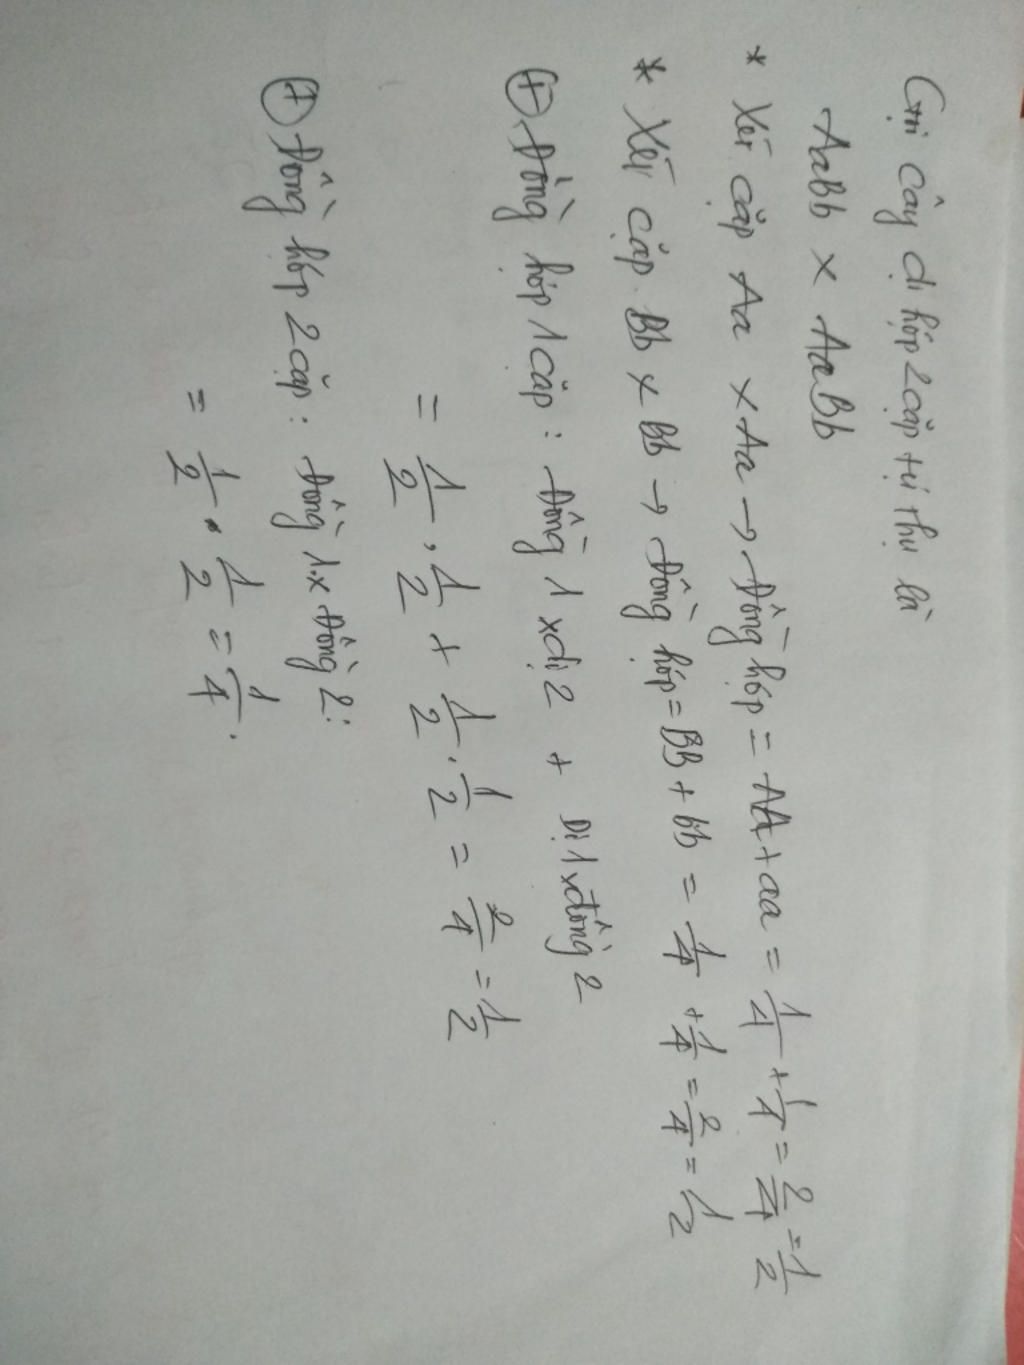 Gọi cây dị hợp 2 cặp tự thụ là
AaBb x AaBb
* Xét cặp Aa x Aa → Đồng hợp = AA + aa = 1/4 + 1/4 = 2/4 = 1/2
* Xét cặp Bb x Bb → Đồng hợp = BB + bb = 1/4 + 1/4 = 2/4 = 1/2
(+) Đồng hợp 1 cặp : Đồng 1 x dị 2 + Dị 1 x đồng 2
= 1/2 . 1/2 + 1/2 . 1/2 = 2/4 = 1/2
(+) Đồng hợp 2 cặp : Đồng 1 x Đồng 2 :
= 1/2 . 1/2 = 1/4 .